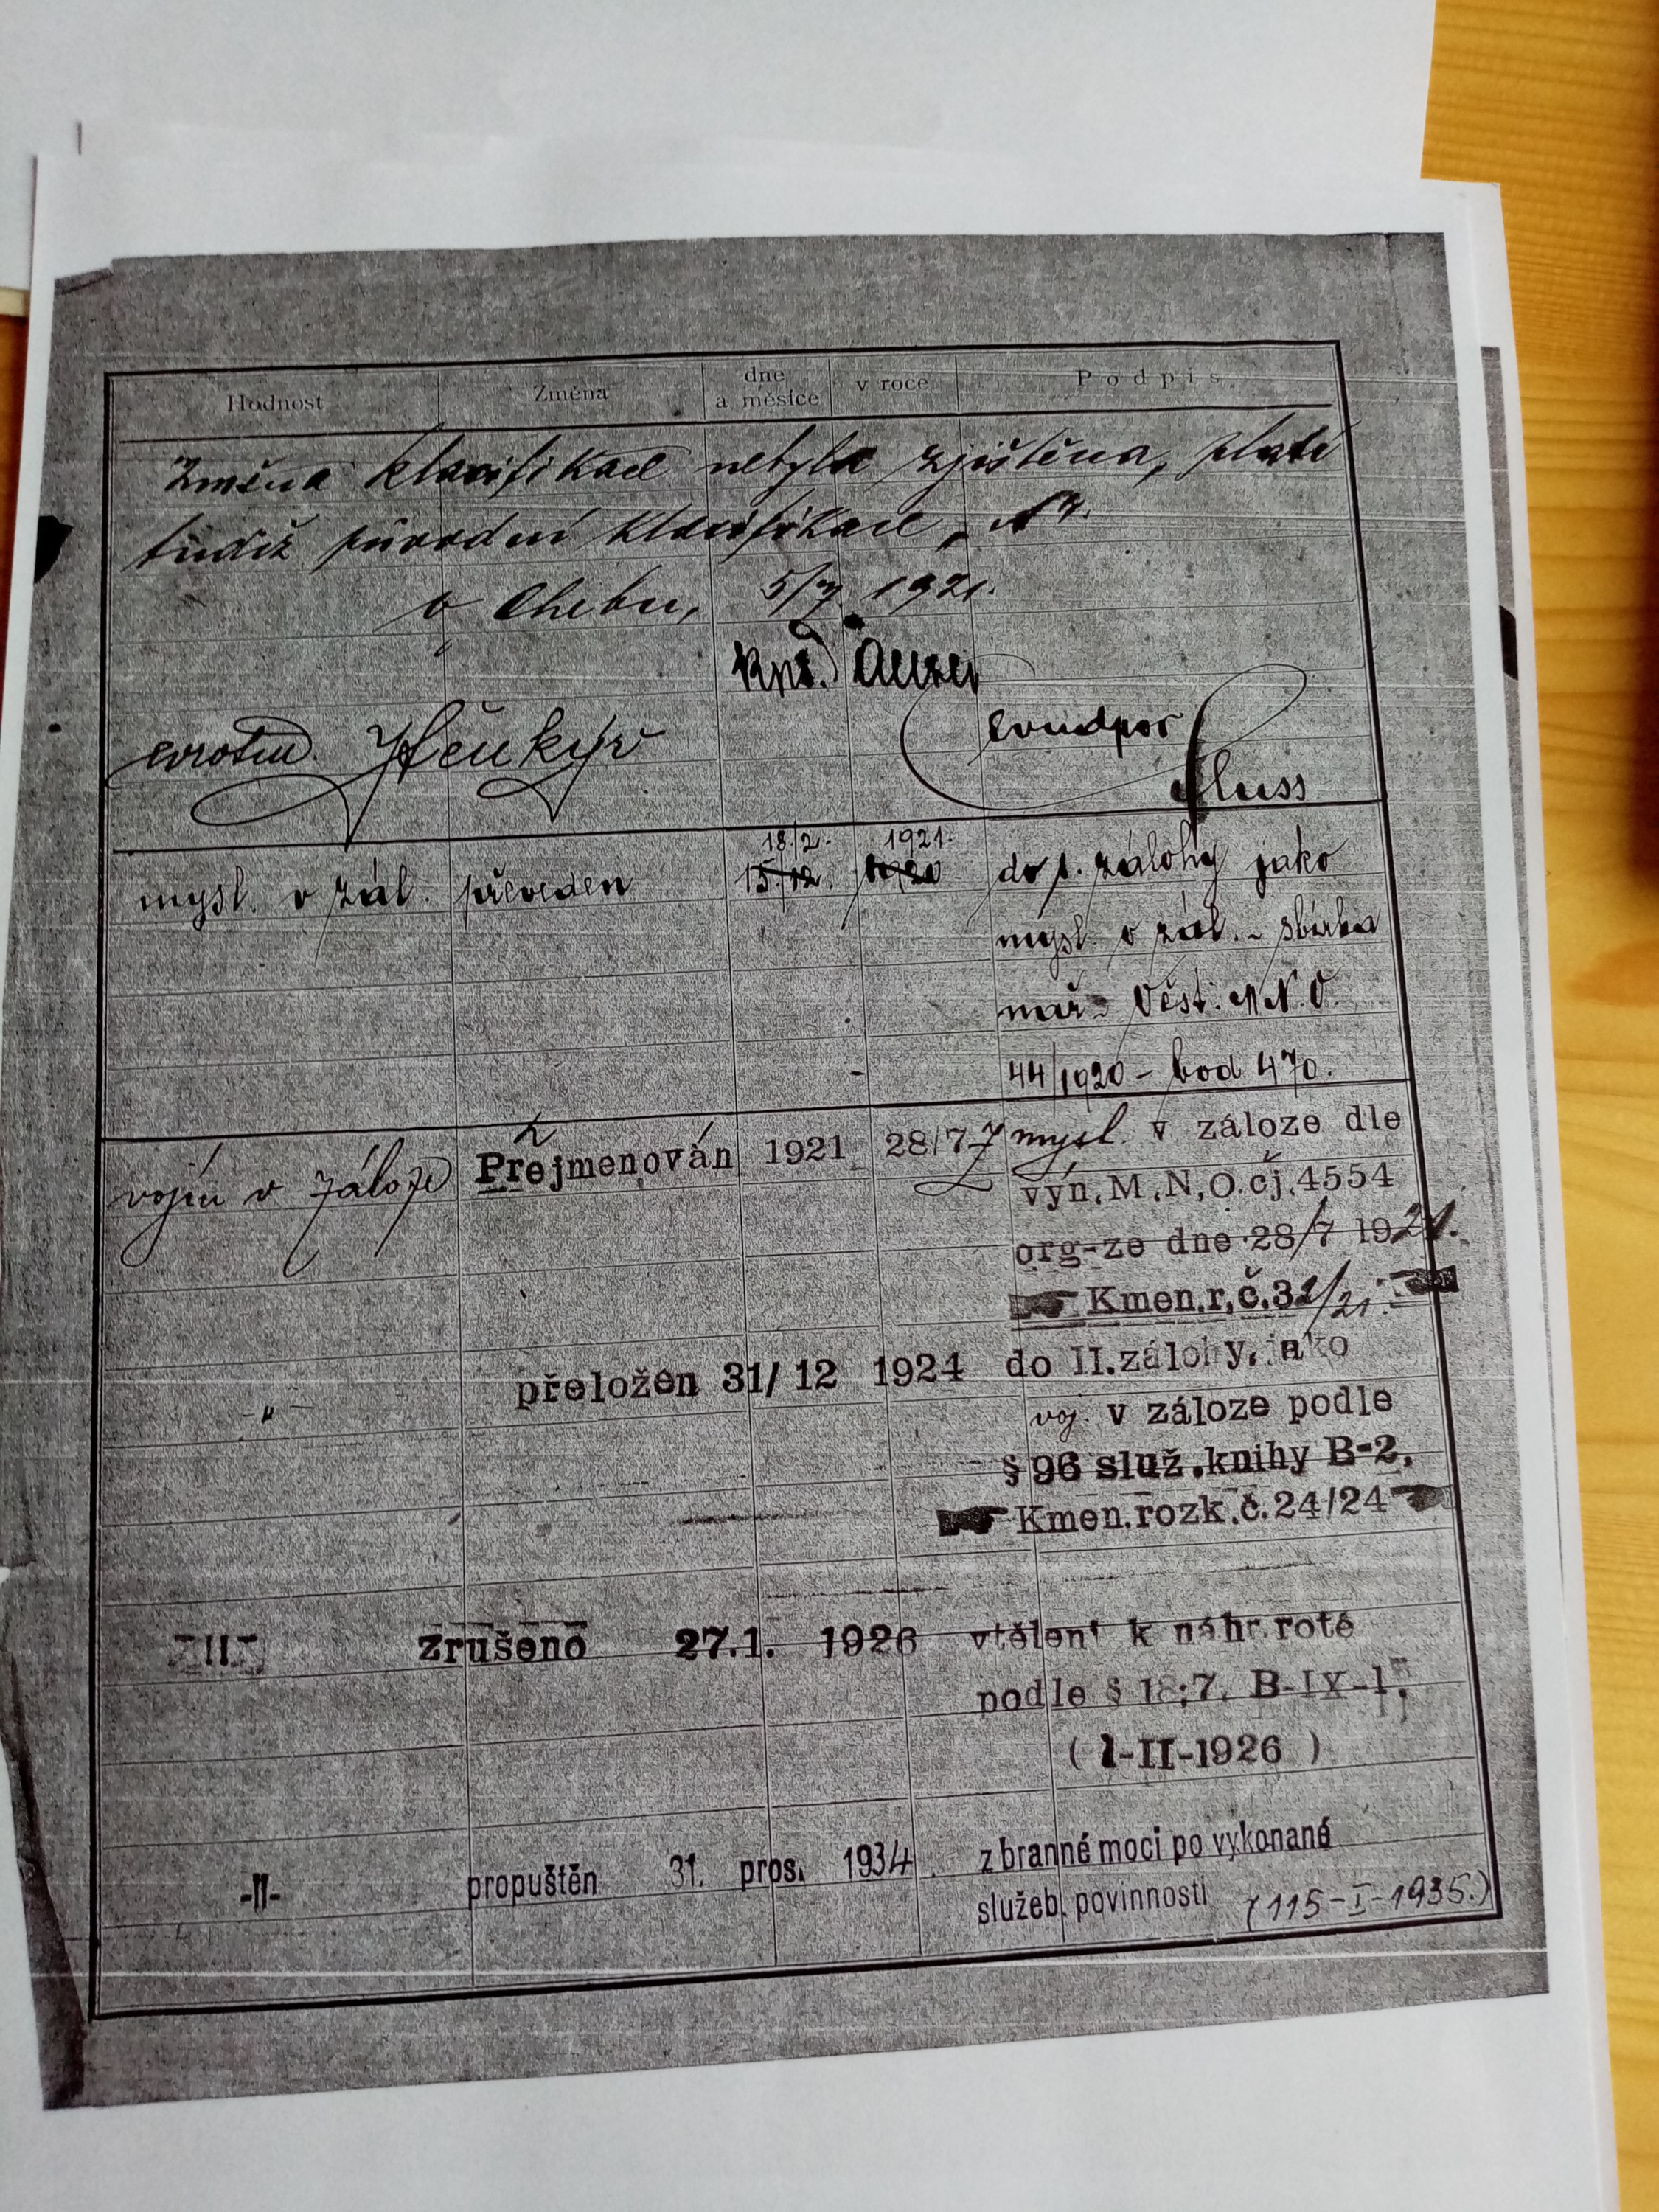 Hodnost Změna dne a měsíce v roce Podpis
Změna klasifikace nebyla zjištěna, platí
tudíž původní klasifikace
v Chebu, 5/7 1921.
kpt.
evndpor
mysl. v zál. převeden 15/12. 18/2. 1920 1921. do I. zálohy jako
mysl. v zál. - sbírka
nař. Věst. M.N.O.
44/1920 - bod 470.
vojín v záloze Přejmenován 1921 28/7 z mysl. v záloze dle
výn.M.N.O.čj.4554
org-ze dne 28/7 1921.
Kmen.r.č.32/21.
-"- přeložen 31/12 1924 do II.zálohy, jako
voj. v záloze podle
§ 96 služ.knihy B-2.
Kmen.rozk.č.24/24
-II- zrušeno 27.1. 1926 vtělení k náhr.rotě
podle § 18:7. B-IX-1"
(1-II-1926)
-II- propuštěn 31. pros. 1934 z branné moci po vykonané
služeb. povinnosti (115-I-1935.)